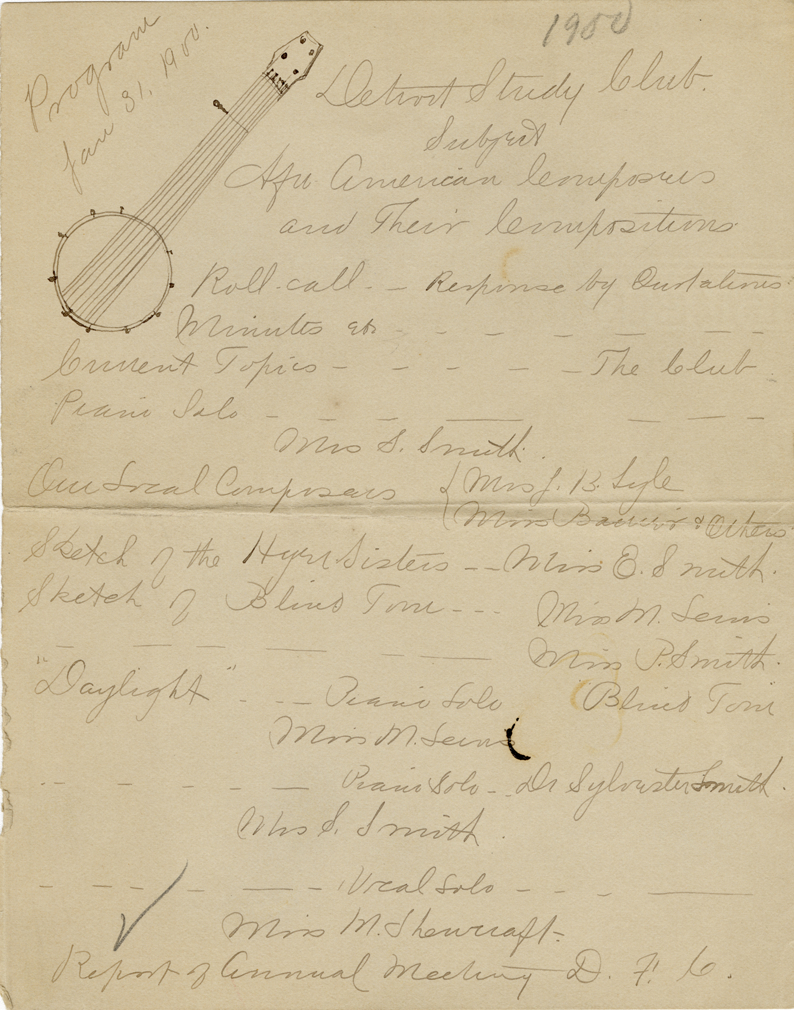 1900
Program
Jan 31, 1900.
Detroit Study Club.
Subject
Afro American Composers
and Their Compositions
Roll-call - - Response by Quotations
Minutes etc - - - - - - -
Current Topics - - - - - The Club
Piano Solo - - - - - - -
Mrs S. Smith.
Our Local Composers { Mrs J. B. Lyle
Miss & Others
Sketch of the Hyer Sisters - - Miss E. Smith.
Sketch of Blind Tom - - - Miss M. Lewis
- - - - - - - Miss P. Smith.
"Daylight" - - - Piano Solo Blind Tom
Miss M. Lewis
- - - - - - Piano Solo - - Dr Sylvester Smith.
Mrs S. Smith.
- - - - - - - Vocal Solo - - - -
Miss M. Shewcraft-
Report of Annual Meeting D. F. C.